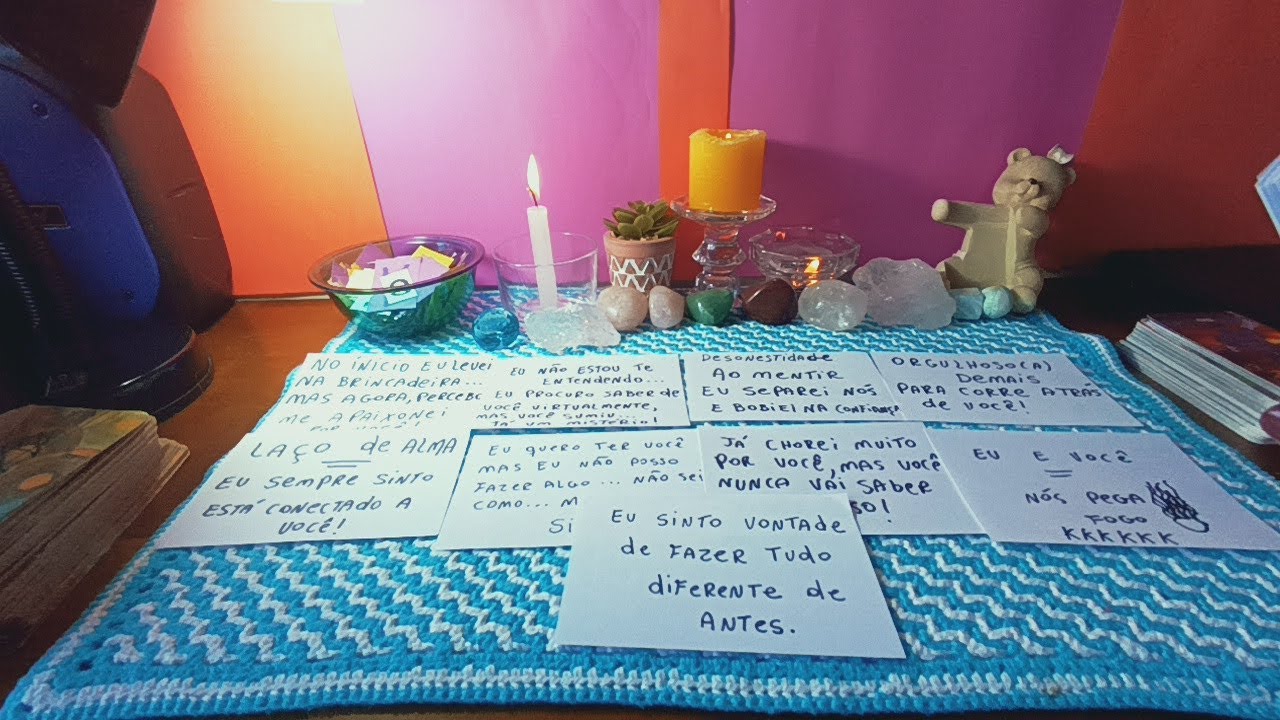 NO INÍCIO EU LEVEI
NA BRINCADEIRA...
MAS AGORA, PERCEBO
ME APAIXONEI
EU NÃO ESTOU TE
ENTENDENDO...
EU PROCURO SABER DE
VOCÊ VIRTUALMENTE,
MAS VOCÊ SUMIU...
TÁ UM MISTÉRIO!
DESONESTIDADE
AO MENTIR
EU SEPAREI NÓS
E BOBIEI NA CONFIANÇA
ORGULHOSO(A)
DEMAIS
PARA CORRE ATRÁS
de VOCÊ!
LAÇO de ALMA
EU SEMPRE SINTO
ESTÁ CONECTADO A
VOCÊ!
EU QUERO TER VOCÊ
MAS EU NÃO POSSO
FAZER ALGO... NÃO SEI
COMO...
JÁ CHOREI MUITO
POR VOCÊ, MAS VOCÊ
NUNCA VAI SABER
EU E VOCÊ
NÓS PEGA
FOGO
KKKKKK
EU SINTO VONTADE
de FAZER TUDO
diFERENTE de
ANTES.